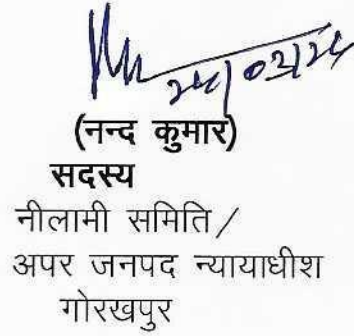 (नन्द कुमार)
सदस्य
नीलामी समिति/
अपर जनपद न्यायाधीश
गोरखपुर